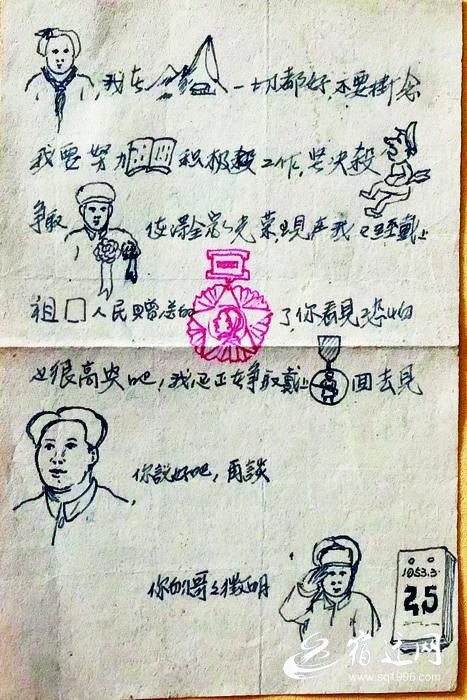 我在 一切都好,不要掛念
我要努力 积极 工作,坚决殺
争取 使得全家光荣,現在我已經戴上
祖囗人民贈送的 了你看見恐怕
也很高兴吧,我还正在争取戴上 回去見
你説好吧,再談
你的哥之徵明
1953.3.
25
宿迁网
www.sq1996.com